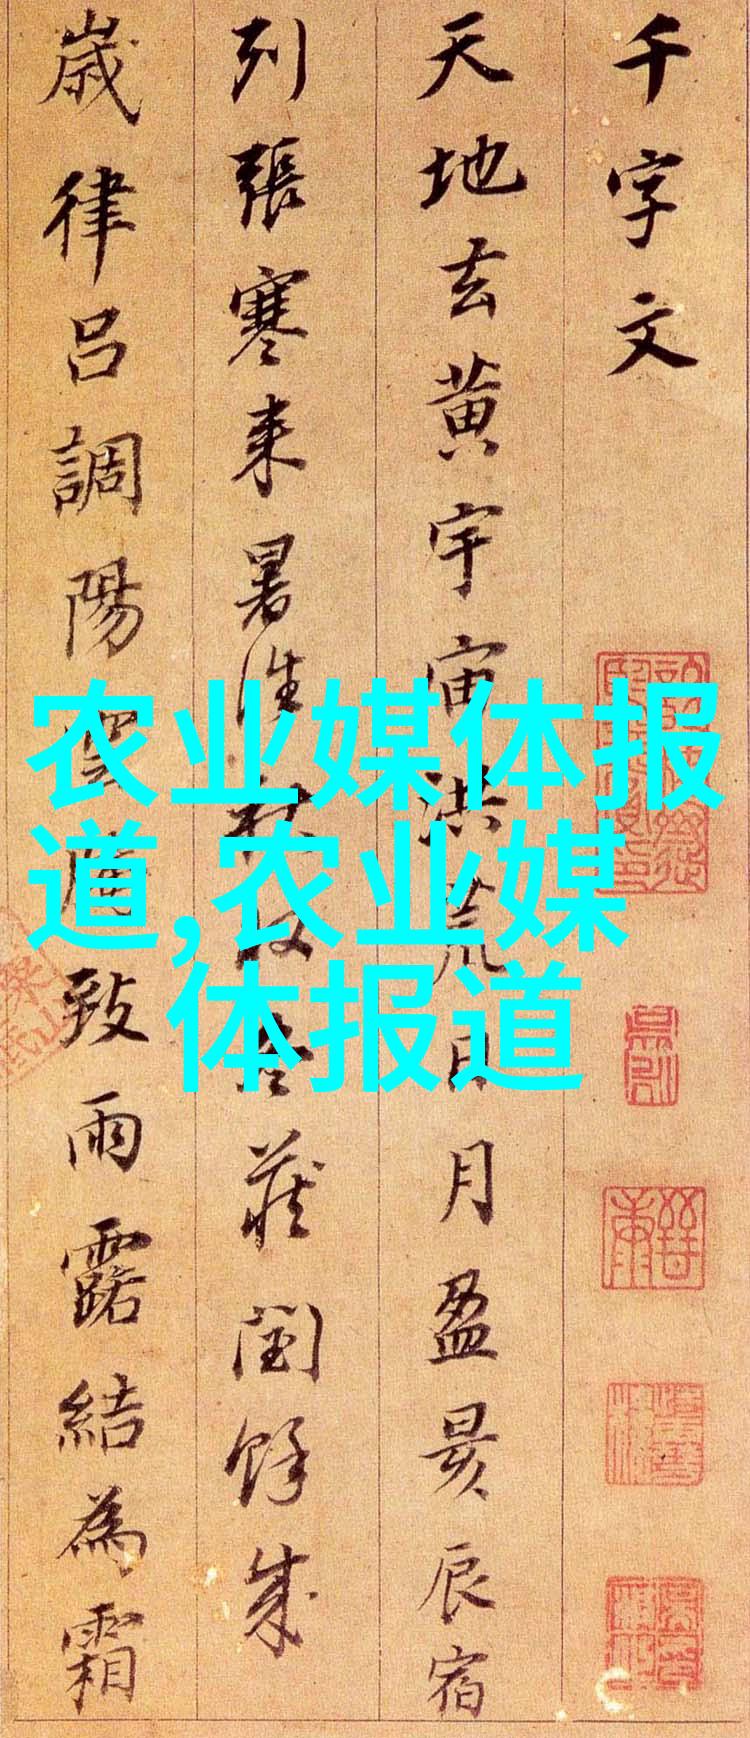 千字文
天地玄黄宇宙洪荒日月盈昃辰宿
列張寒来暑往秋收冬蔵閏餘成
歲律吕調陽雲騰致雨露結為霜
农业媒体报
道,农业媒
体报道